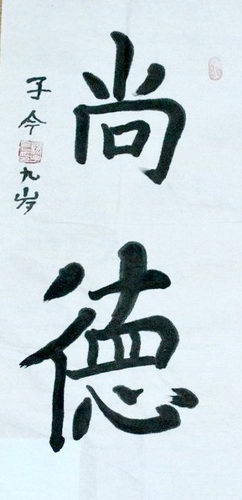 尚德
子今九岁